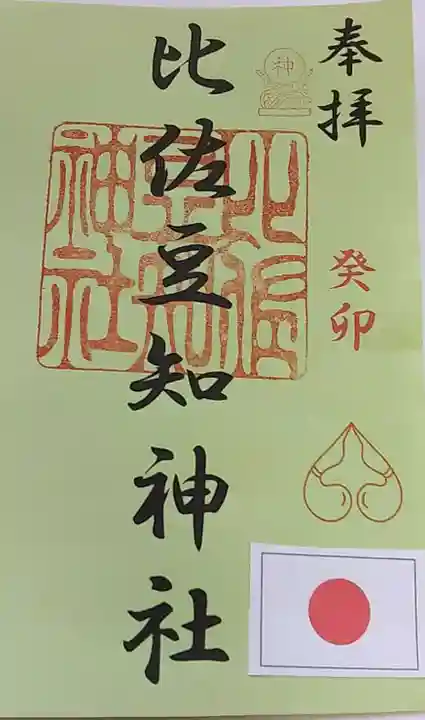 奉拝
神
癸卯
比佐豆知神社
比佐
豆知
神社